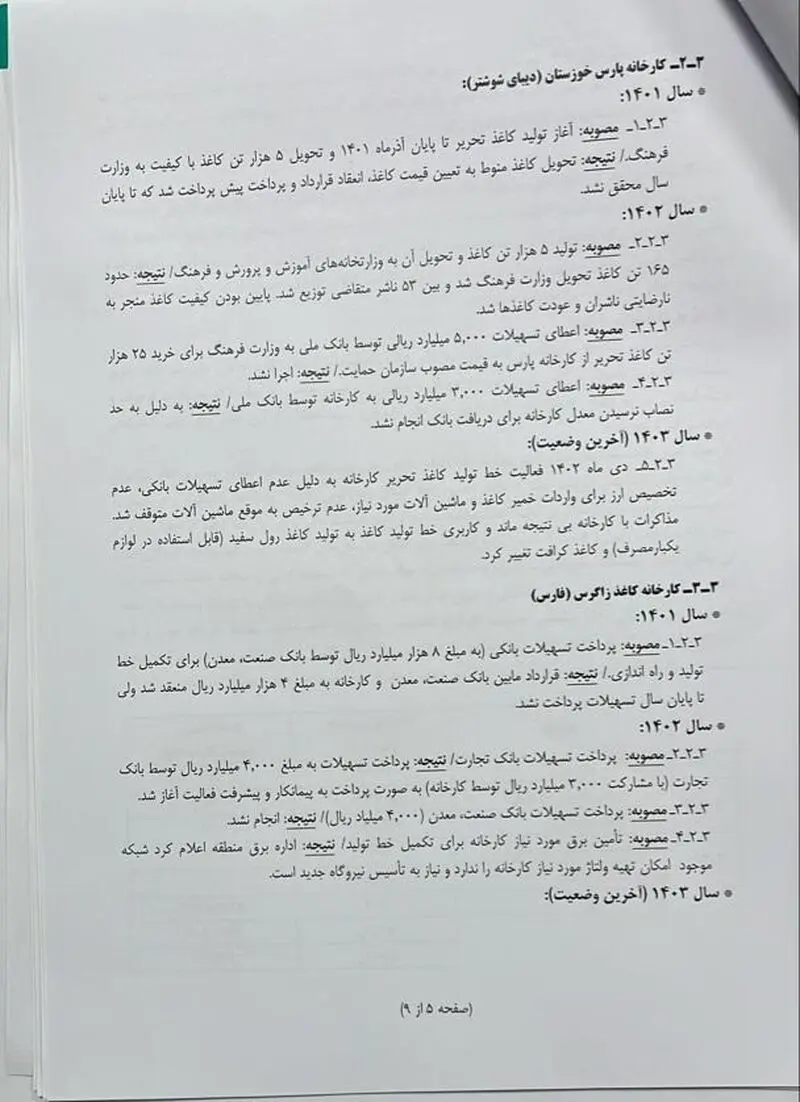 ۳ـ۲ـ کارخانه پارس خوزستان (دیبای شوشتر):
● سال ۱۴۰۱:
۳ـ۲ـ۱ـ مصوبه: آغاز تولید کاغذ تحریر تا پایان آذرماه ۱۴۰۱ و تحویل ۵ هزار تن کاغذ با کیفیت به وزارت
فرهنگ./ نتیجه: تحویل کاغذ منوط به تعیین قیمت کاغذ، انعقاد قرارداد و پرداخت پیش پرداخت شد که تا پایان
سال محقق نشد.
● سال ۱۴۰۲:
۳ـ۲ـ۲ـ مصوبه: تولید ۵ هزار تن کاغذ و تحویل آن به وزارتخانه‌های آموزش و پرورش و فرهنگ/ نتیجه: حدود
۱۶۵ تن کاغذ تحویل وزارت فرهنگ شد و بین ۵۳ ناشر متقاضی توزیع شد. پایین بودن کیفیت کاغذ منجر به
نارضایتی ناشران و عودت کاغذها شد.
۳ـ۲ـ۳ـ مصوبه: اعطای تسهیلات ۵,۰۰۰ میلیارد ریالی توسط بانک ملی به وزارت فرهنگ برای خرید ۲۵ هزار
تن کاغذ تحریر از کارخانه پارس به قیمت مصوب سازمان حمایت./ نتیجه: اجرا نشد.
۳ـ۲ـ۴ـ مصوبه: اعطای تسهیلات ۳,۰۰۰ میلیارد ریالی به کارخانه توسط بانک ملی/ نتیجه: به دلیل به حد
نصاب نرسیدن معدل کارخانه برای دریافت بانک انجام نشد.
● سال ۱۴۰۳ (آخرین وضعیت):
۳ـ۲ـ۵ـ دی ماه ۱۴۰۲ فعالیت خط تولید کاغذ تحریر کارخانه به دلیل عدم اعطای تسهیلات بانکی، عدم
تخصیص ارز برای واردات خمیر کاغذ و ماشین آلات مورد نیاز، عدم ترخیص به موقع ماشین آلات متوقف شد.
مذاکرات با کارخانه بی نتیجه ماند و کاربری خط تولید کاغذ به تولید کاغذ رول سفید (قابل استفاده در لوازم
یکبارمصرف) و کاغذ کرافت تغییر کرد.
۳ـ۳ـ کارخانه کاغذ زاگرس (فارس)
● سال ۱۴۰۱:
۳ـ۲ـ۱ـ مصوبه: پرداخت تسهیلات بانکی (به مبلغ ۸ هزار میلیارد ریال توسط بانک صنعت، معدن) برای تکمیل خط
تولید و راه اندازی./ نتیجه: قرارداد مابین بانک صنعت، معدن و کارخانه به مبلغ ۴ هزار میلیارد ریال منعقد شد ولی
تا پایان سال تسهیلات پرداخت نشد.
● سال ۱۴۰۲:
۳ـ۲ـ۲ـ مصوبه: پرداخت تسهیلات بانک تجارت/ نتیجه: پرداخت تسهیلات به مبلغ ۴,۰۰۰ میلیارد ریال توسط بانک
تجارت (با مشارکت ۳,۰۰۰ میلیارد ریال توسط کارخانه) به صورت پرداخت به پیمانکار و پیشرفت فعالیت آغاز شد.
۳ـ۲ـ۳ـ مصوبه: پرداخت تسهیلات بانک صنعت، معدن (۴,۰۰۰ میلیاد ریال)/ نتیجه: انجام نشد.
۳ـ۲ـ۴ـ مصوبه: تأمین برق مورد نیاز کارخانه برای تکمیل خط تولید/ نتیجه: اداره برق منطقه اعلام کرد شبکه
موجود امکان تهیه ولتاژ مورد نیاز کارخانه را ندارد و نیاز به تأسیس نیروگاه جدید است.
● سال ۱۴۰۳ (آخرین وضعیت):
(صفحه ۵ از ۹)